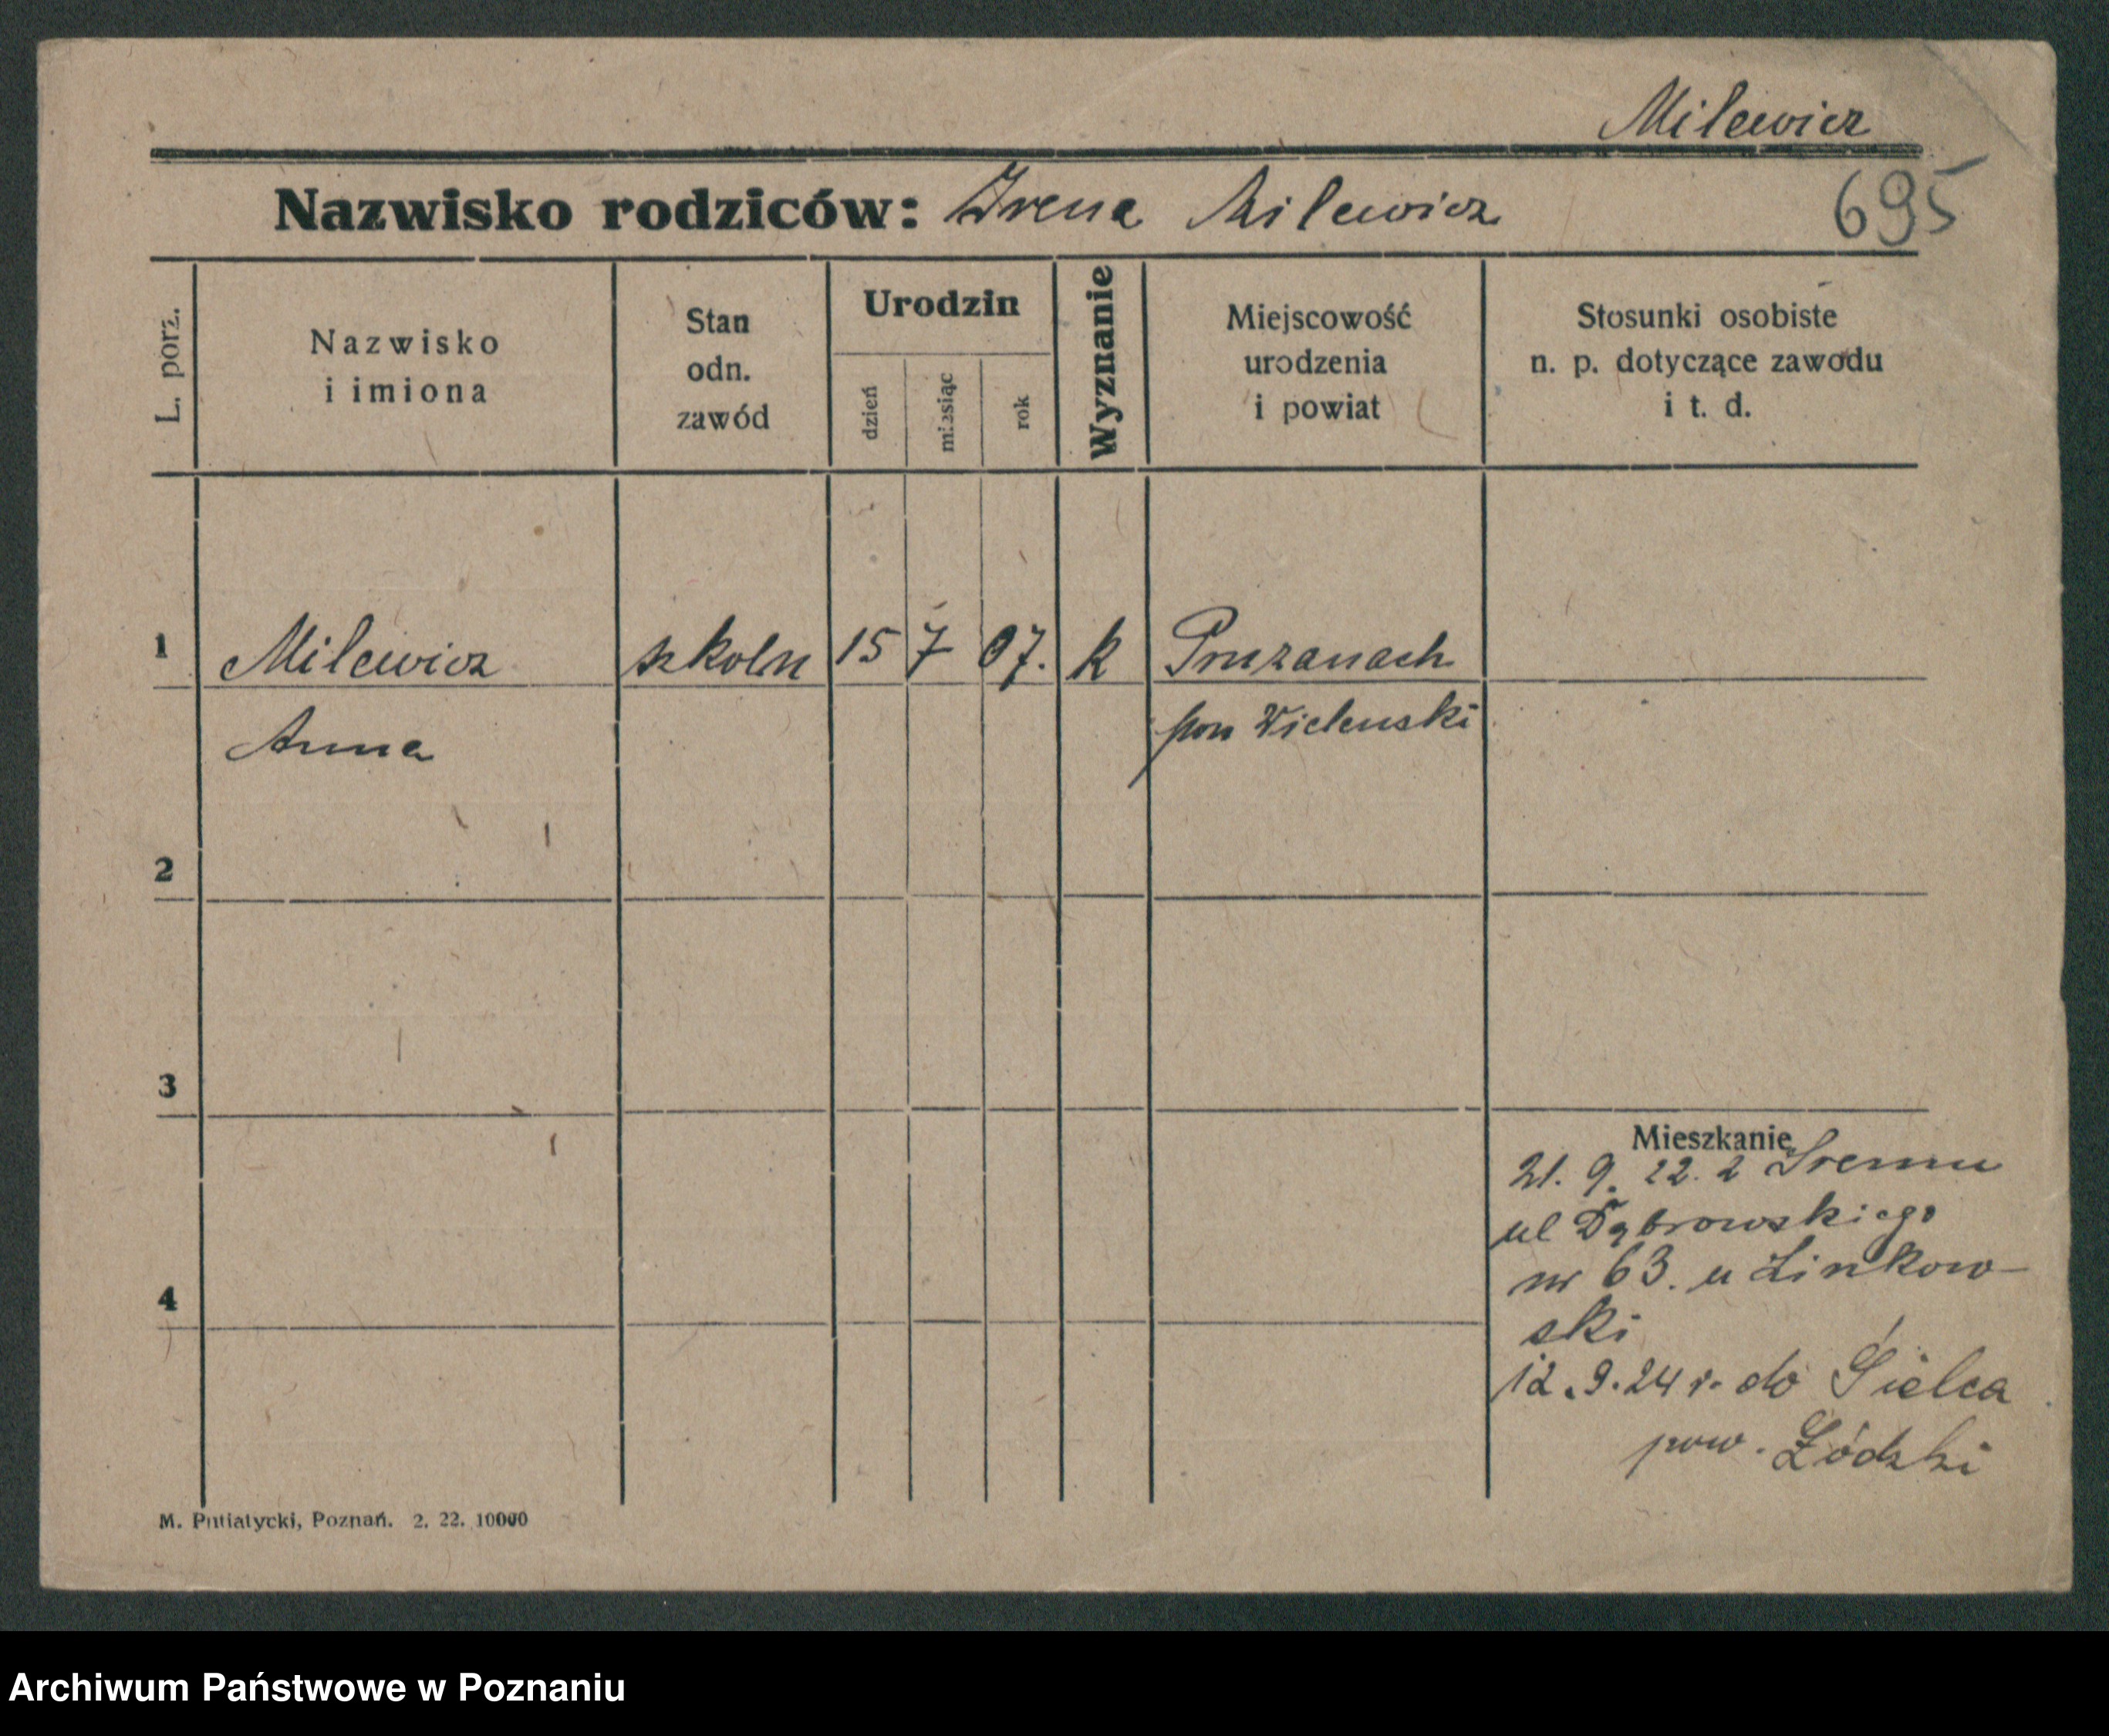 Milewicz
Nazwisko rodziców: Irena Milewicz
695
L. porz.
Nazwisko
i imiona
Stan
odn.
zawód
Urodzin
dzień
miesiąc
rok
Wyznanie
Miejscowość
urodzenia
i powiat
Stosunki osobiste
n. p. dotyczące zawodu
i t. d.
1 Milewicz szkoln 15 7 07. k Pruzanach
Anna pow Wielenski
2
3
Mieszkanie
21. 9. 22. z Sremu
ul Dąbrowskiego
nr 63. u Linkow-
ski
4
12.9.24 r. do Sielca
pow. Łódzki
M. Putiatycki, Poznań. 2. 22. 10000
Archiwum Państwowe w Poznaniu